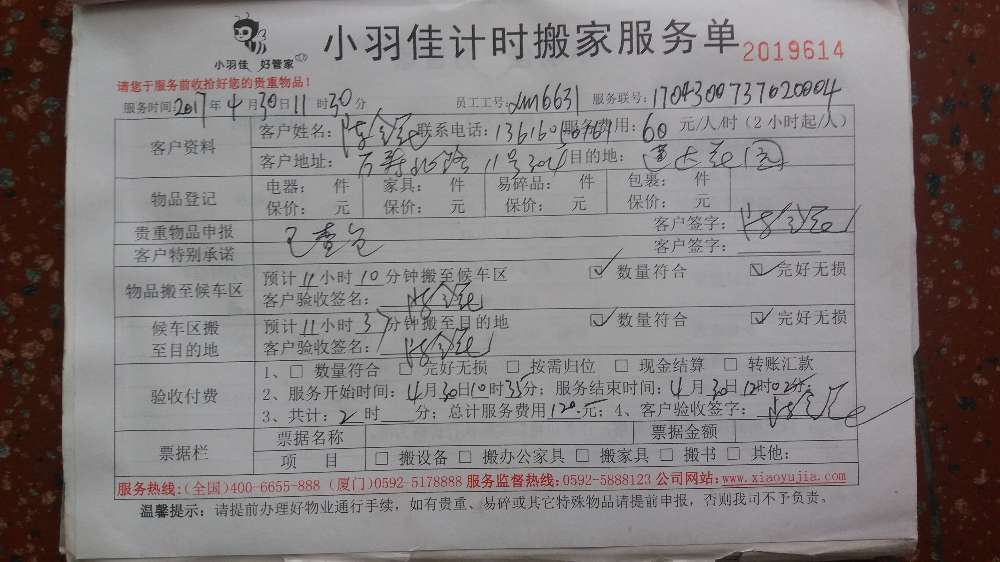 小羽佳 好管家
小羽佳计时搬家服务单 2019614
请您于服务前收拾好您的贵重物品!
服务时间:2017年4月30日11时30分 员工工号: 6631 服务联号:1704300737020004
客户资料
客户姓名: 联系电话: 服务费用:60元/人/时(2小时起/人)
客户地址: 万寿北路11号 目的地:
物品登记
电器: 件 家具: 件 易碎品: 件 包裹: 件
保价: 元 保价: 元 保价: 元 保价: 元
贵重物品申报 已查包 客户签字:
客户特别承诺 客户签字:
物品搬至候车区
预计11小时10分钟搬至候车区 ☑数量符合 ☑完好无损
客户验收签名:
候车区搬至目的地
预计11小时37分钟搬至目的地 ☑数量符合 ☑完好无损
客户验收签名:
验收付费
1、□ 数量符合 □ 完好无损 □ 按需归位 □ 现金结算 □ 转账汇款
2、服务开始时间:4月30日10时35分; 服务结束时间:4月30日12时02分;
3、共计:2时 分; 总计服务费用120元; 4、客户验收签字:
票据栏
票据名称 票据金额
项 目 □ 搬设备 □ 搬办公家具 □ 搬家具 □ 搬书 □ 其他:
服务热线:(全国)400-6655-888 (厦门)0592-5178888 服务监督热线:0592-5888123 公司网站:www.xiaoyujia.com
温馨提示:请提前办理好物业通行手续,如有贵重、易碎或其它特殊物品请提前申报,否则我司不予负责。